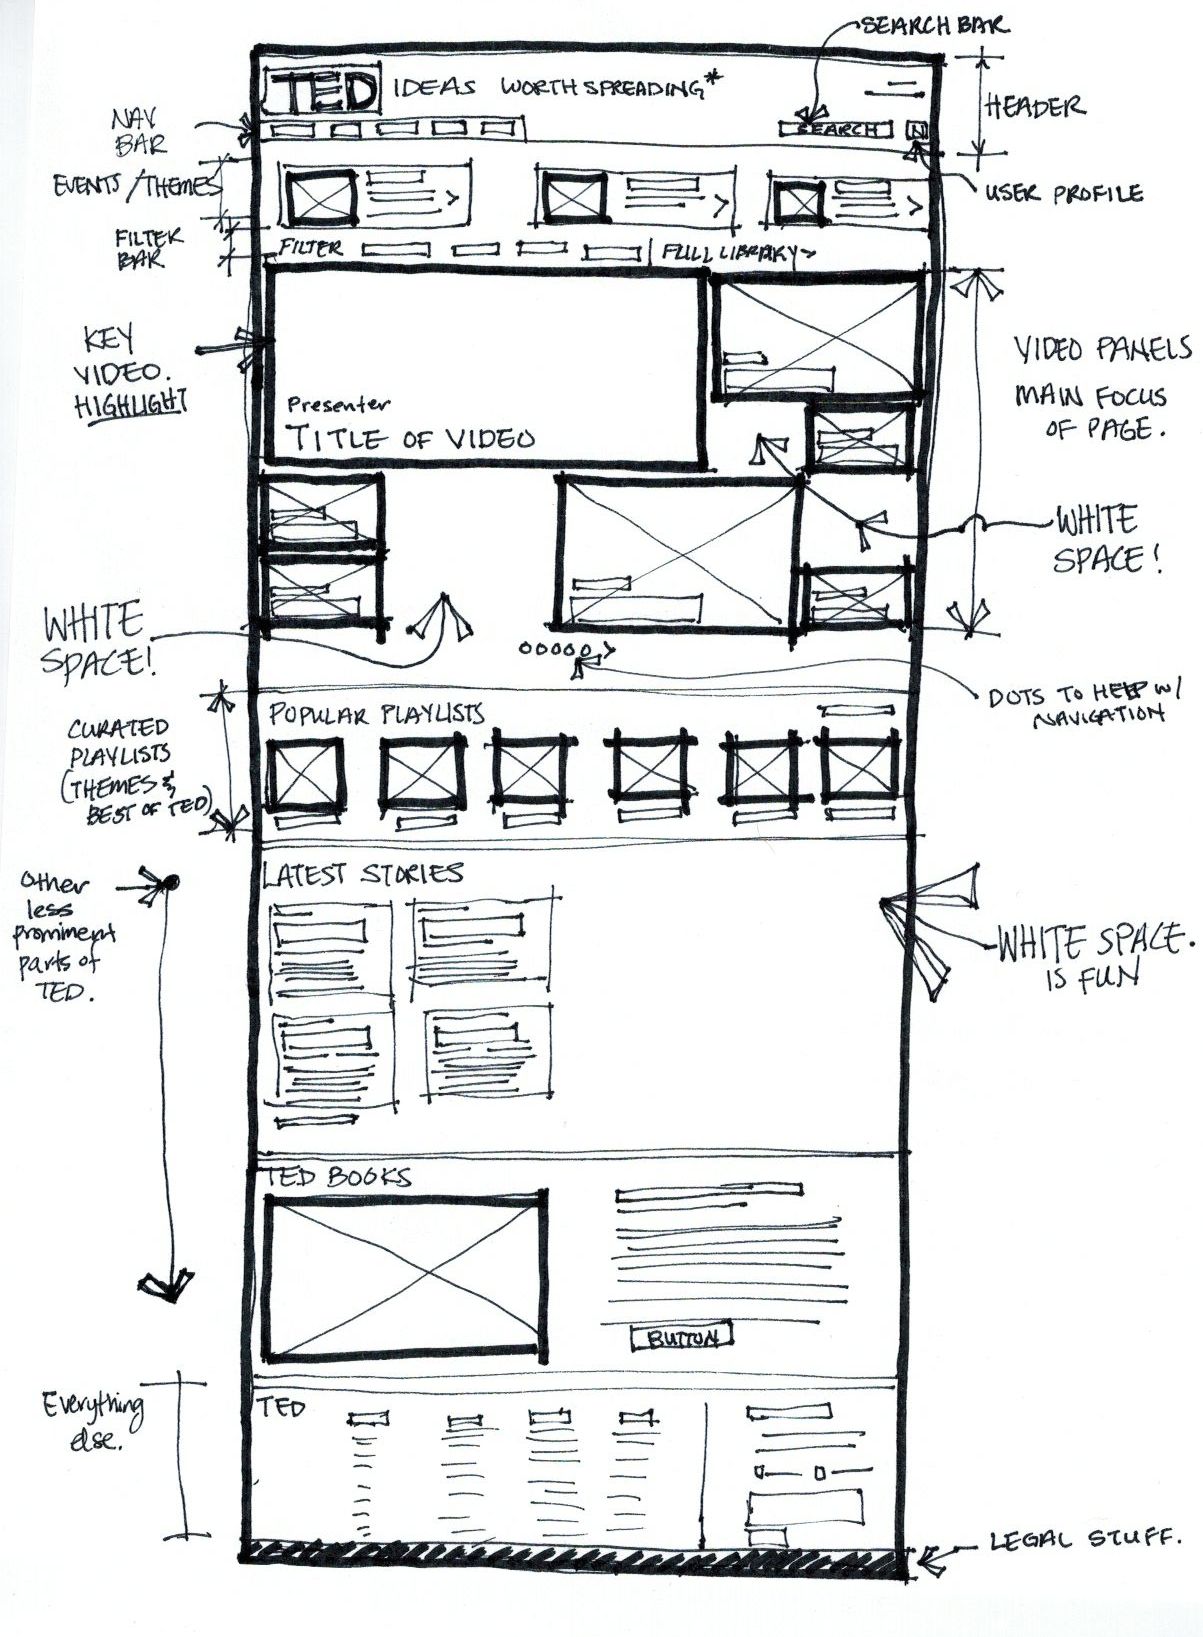 SEARCH BAR
TED IDEAS WORTH SPREADING*
HEADER
NAV
BAR
SEARCH N
EVENTS/THEMES
USER PROFILE
FILTER
BAR
FILTER
FULL LIBRARY>
KEY
VIDEO.
HIGHLIGHT
Presenter
TITLE OF VIDEO
VIDEO PANELS
MAIN FOCUS
OF PAGE.
WHITE
SPACE!
WHITE
SPACE!
DOTS TO HELP W/
NAVIGATION
CURATED
PLAYLISTS
(THEMES &
BEST OF TED)
POPULAR PLAYLISTS
Other
less
prominent
parts of
TED.
LATEST STORIES
WHITE SPACE.
IS FUN
TED BOOKS
BUTTON
Everything
else.
TED
LEGAL STUFF.